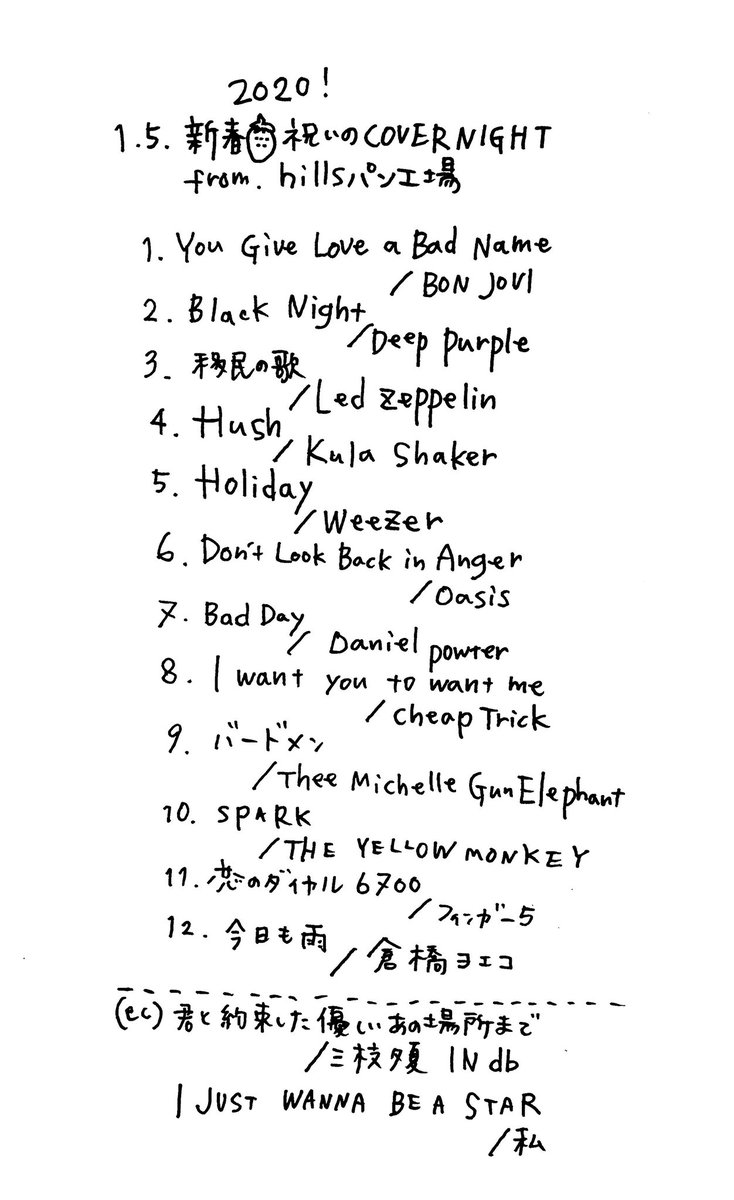 2020!
1.5. 新春 祝いのCOVER NIGHT
from. hillsパン工場
1. You Give Love a Bad Name
/ BON JOVI
2. Black Night
/Deep purple
3. 移民の歌
/Led zeppelin
4. Hush
/ Kula Shaker
5. Holiday
/Weezer
6. Don't Look Back in Anger
/Oasis
7. Bad Day
/ Daniel powter
8. I want you to want me
/cheap Trick
9. バードメン
/Thee Michelle Gun Elephant
10. SPARK
/THE YELLOW MONKEY
11. 恋のダイヤル6700
/フィンガー5
12. 今日も雨
/倉橋ヨエコ
(ec) 君と約束した優しいあの場所まで
/三枝夕夏 IN db
I JUST WANNA BE A STAR
/私